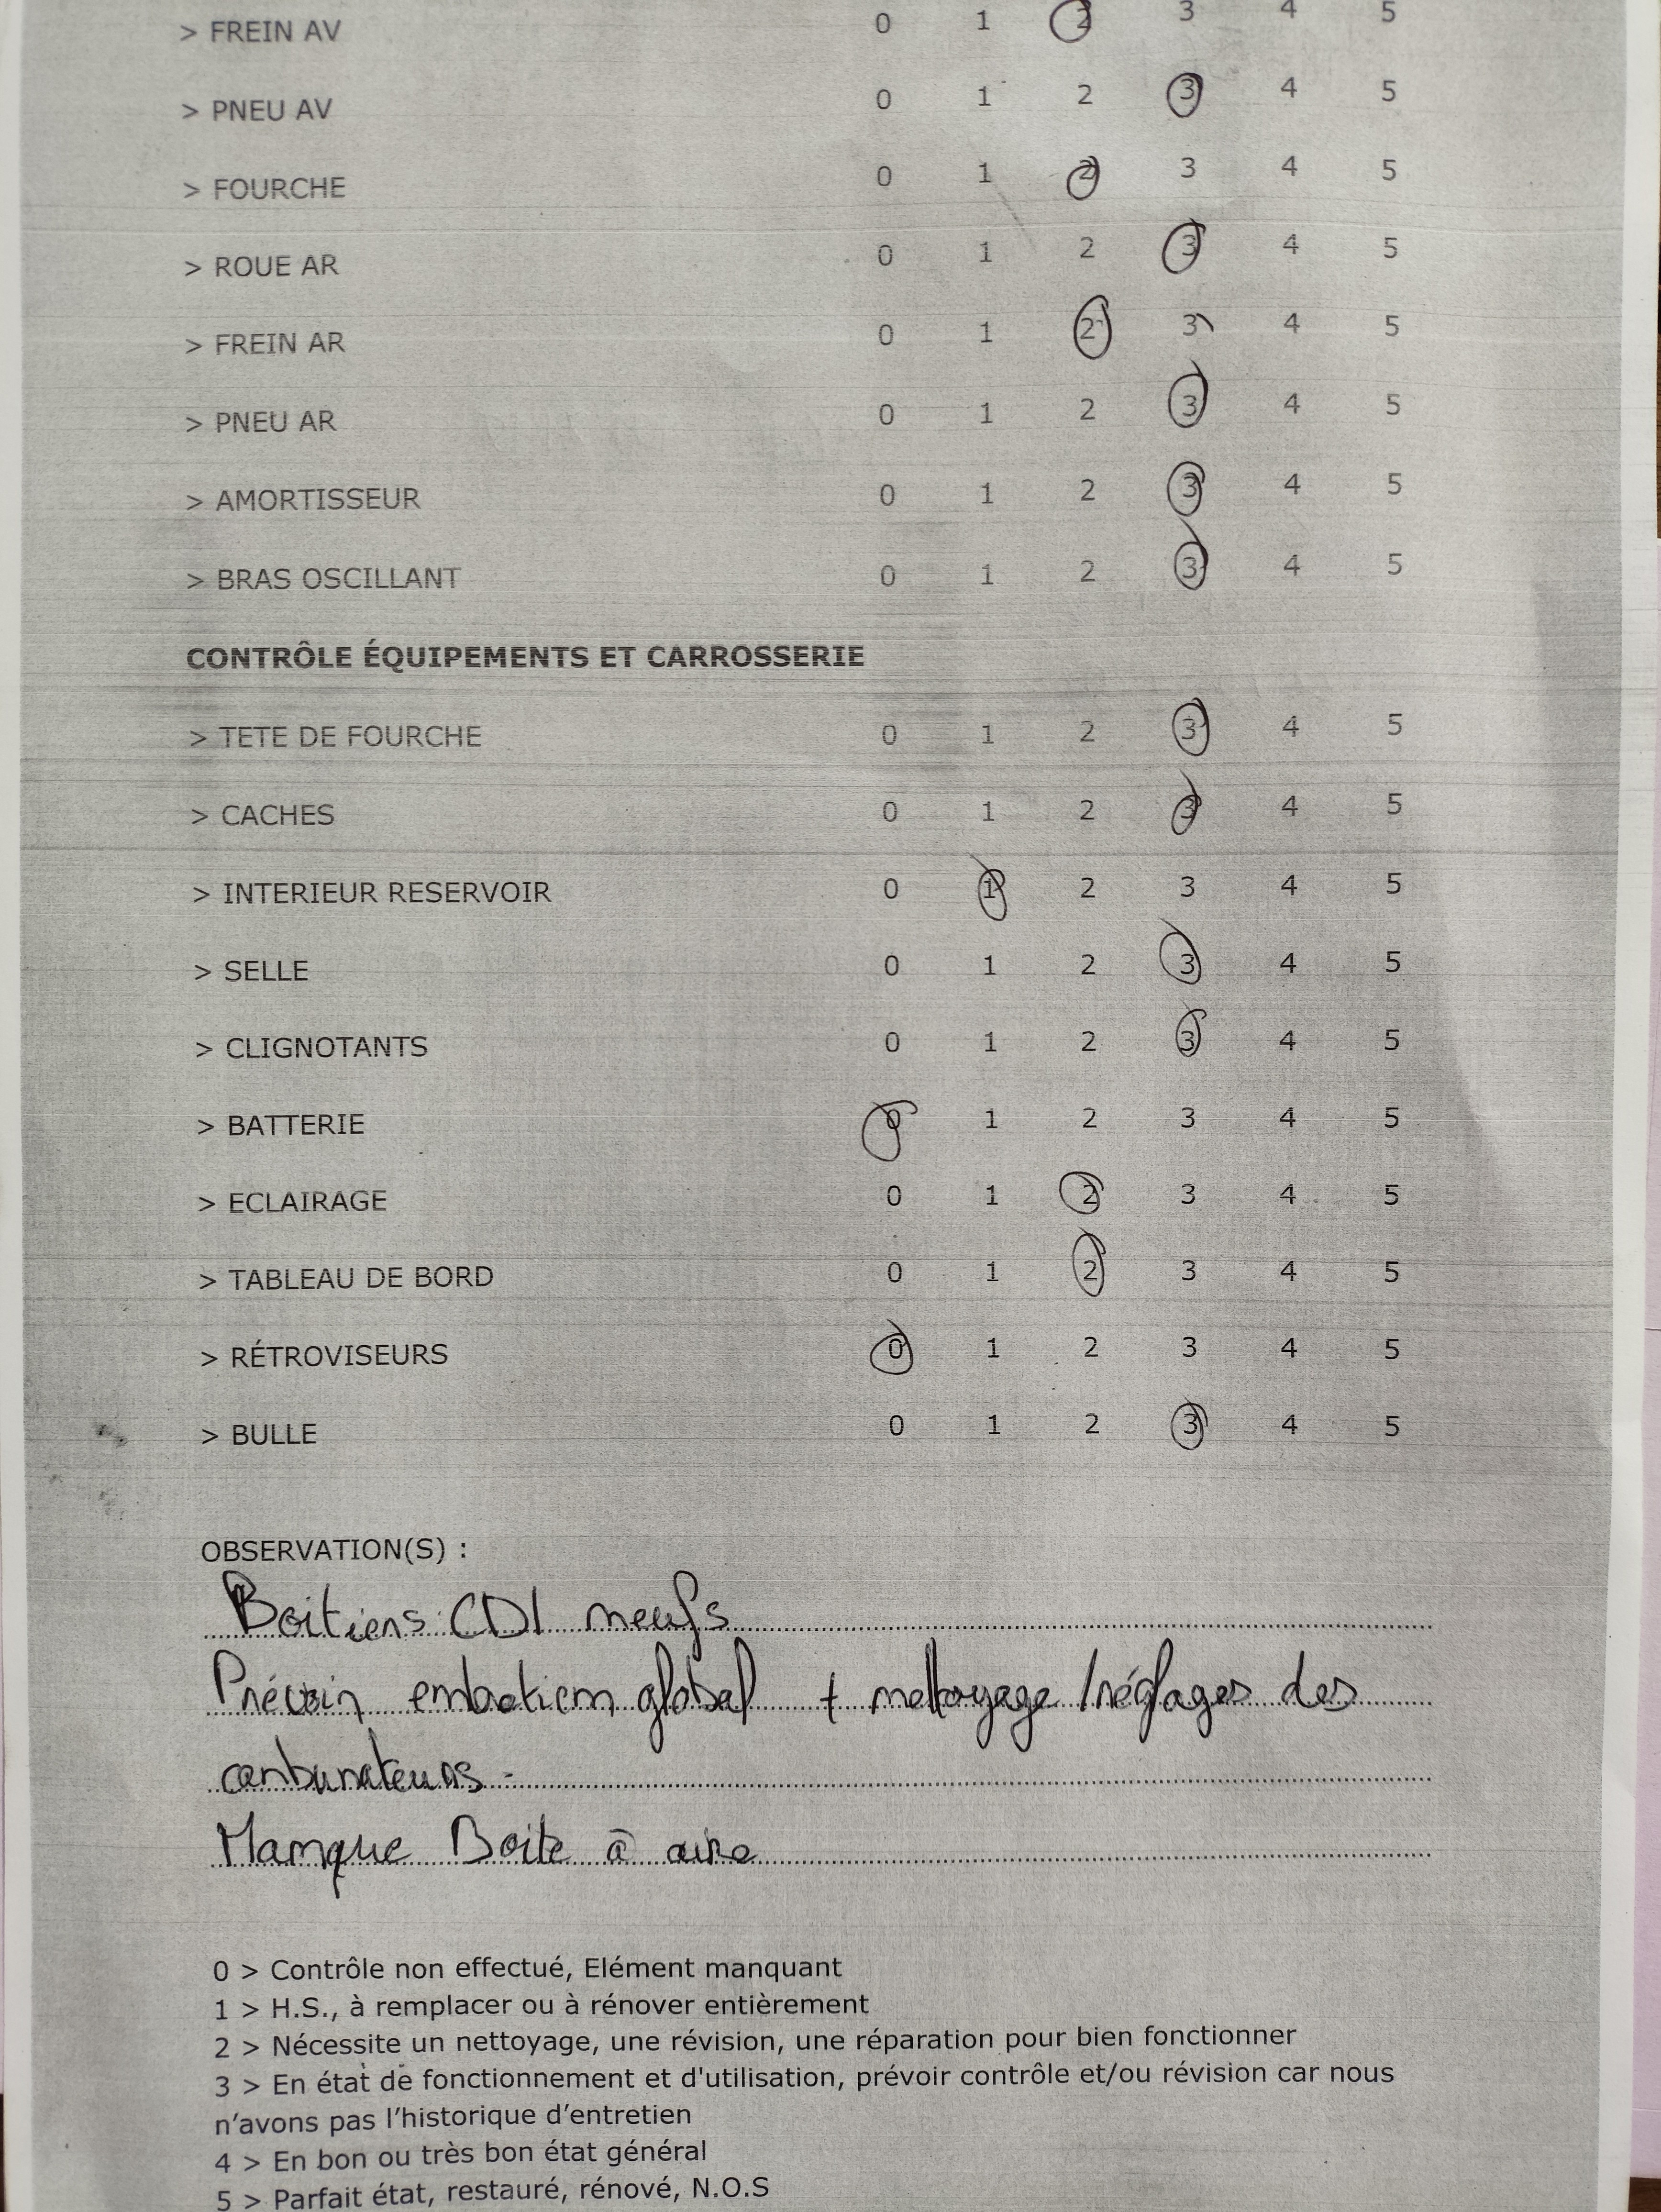 > FREIN AV 0 1 2 3 4 5
> PNEU AV 0 1 2 3 4 5
> FOURCHE 0 1 2 3 4 5
> ROUE AR 0 1 2 3 4 5
> FREIN AR 0 1 2 3 4 5
> PNEU AR 0 1 2 3 4 5
> AMORTISSEUR 0 1 2 3 4 5
> BRAS OSCILLANT 0 1 2 3 4 5
CONTRÔLE ÉQUIPEMENTS ET CARROSSERIE
> TETE DE FOURCHE 0 1 2 3 4 5
> CACHES 0 1 2 3 4 5
> INTERIEUR RESERVOIR 0 1 2 3 4 5
> SELLE 0 1 2 3 4 5
> CLIGNOTANTS 0 1 2 3 4 5
> BATTERIE 0 1 2 3 4 5
> ECLAIRAGE 0 1 2 3 4 5
> TABLEAU DE BORD 0 1 2 3 4 5
> RÉTROVISEURS 0 1 2 3 4 5
> BULLE 0 1 2 3 4 5
OBSERVATION(S) :
Boitiers CDI neufs
Prévoir entretien global + nettoyage / réglages des
carburateurs.
Manque Boite à aire
0 > Contrôle non effectué, Elément manquant
1 > H.S., à remplacer ou à rénover entièrement
2 > Nécessite un nettoyage, une révision, une réparation pour bien fonctionner
3 > En état de fonctionnement et d'utilisation, prévoir contrôle et/ou révision car nous
n'avons pas l'historique d'entretien
4 > En bon ou très bon état général
5 > Parfait état, restauré, rénové, N.O.S